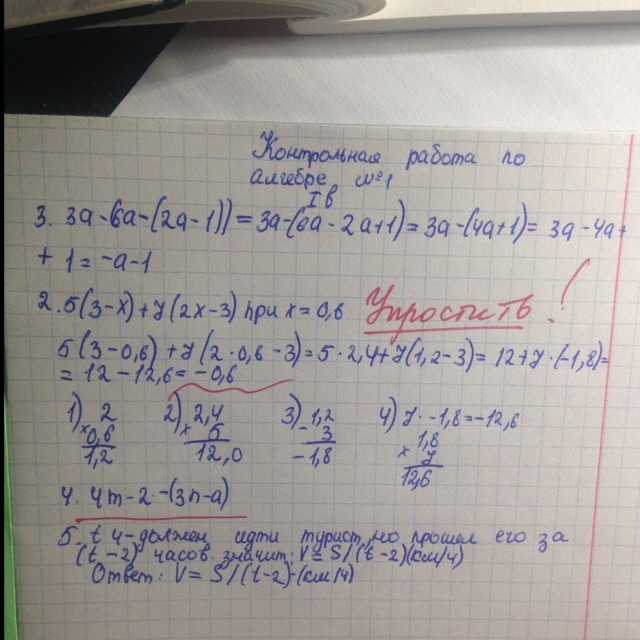 Контрольная работа по
алгебре №1
I в
3. 3a-(6a-(2a-1)) = 3a-(6a-2a+1) = 3a-(4a+1) = 3a-4a+
+ 1 = -a-1
2. 5(3-x)+7(2x-3) при x=0,6
Упростить!
5(3-0,6)+7(2·0,6-3)=5·2,4+7(1,2-3)= 12+7·(-1,8)=
= 12-12,6= -0,6
1) 2 2) 2,4 3) 1,2 4) 7·-1,8=-12,6
× 0,6 × 5 - 3 1,8
1,2 12,0 -1,8 × 7
12,6
4. 4m-2-(3n-a)
5. t ч-должен идти турист, но прошел его за
(t-2) часов. значит: V= S/(t-2)(км/ч)
Ответ: V= S/(t-2)-(км/ч)